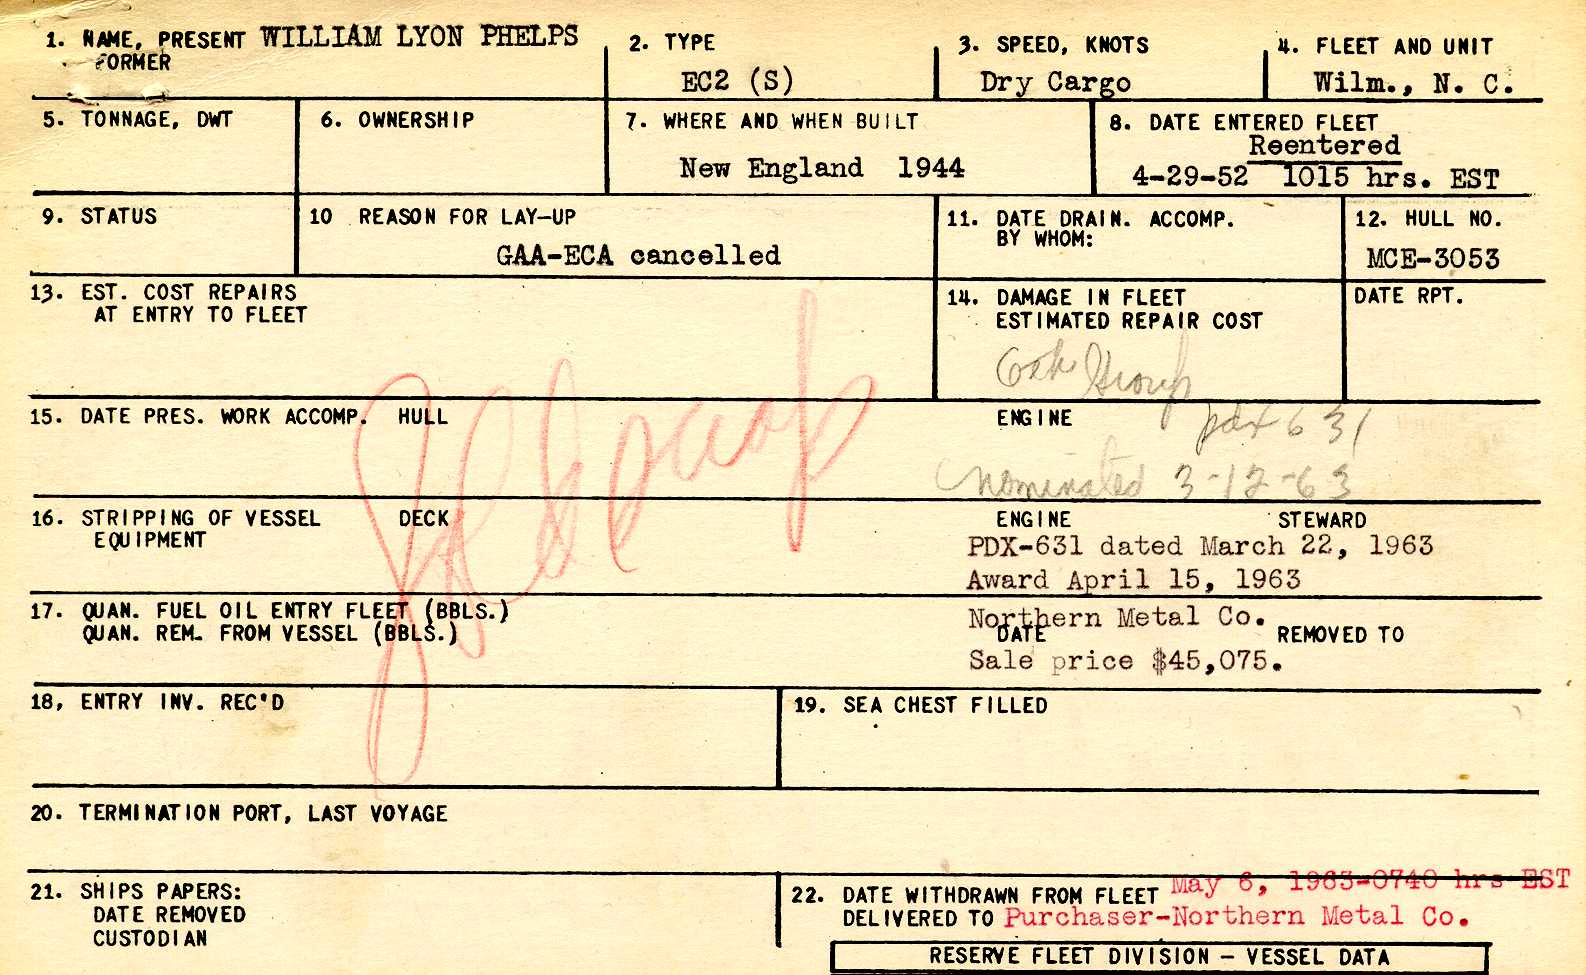 1. NAME, PRESENT WILLIAM LYON PHELPS
FORMER
2. TYPE
EC2 (S)
3. SPEED, KNOTS
Dry Cargo
4. FLEET AND UNIT
Wilm., N. C.
5. TONNAGE, DWT
6. OWNERSHIP
7. WHERE AND WHEN BUILT
New England 1944
8. DATE ENTERED FLEET
Reentered
4-29-52 1015 hrs. EST
9. STATUS
10 REASON FOR LAY-UP
GAA-ECA cancelled
11. DATE DRAIN. ACCOMP.
BY WHOM:
12. HULL NO.
MCE-3053
13. EST. COST REPAIRS
AT ENTRY TO FLEET
14. DAMAGE IN FLEET
ESTIMATED REPAIR COST
DATE RPT.
Group
15. DATE PRES. WORK ACCOMP. HULL
ENGINE
pdx 631
nominated 3-12-63
Scrap
16. STRIPPING OF VESSEL
EQUIPMENT
DECK
ENGINE
STEWARD
PDX-631 dated March 22, 1963
Award April 15, 1963
17. QUAN. FUEL OIL ENTRY FLEET (BBLS.)
QUAN. REM. FROM VESSEL (BBLS.)
Northern Metal Co.
DATE
REMOVED TO
Sale price $45,075.
18, ENTRY INV. REC'D
19. SEA CHEST FILLED
20. TERMINATION PORT, LAST VOYAGE
21. SHIPS PAPERS:
DATE REMOVED
CUSTODIAN
22. DATE WITHDRAWN FROM FLEET May 6, 1963-0740 hrs EST
DELIVERED TO Purchaser-Northern Metal Co.
RESERVE FLEET DIVISION - VESSEL DATA